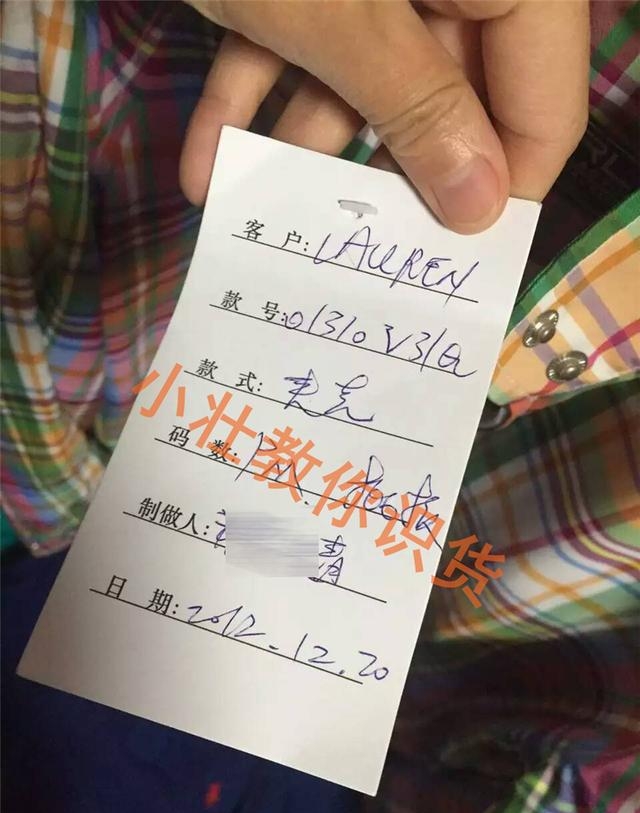 客户: LAUREN
款号: 01310V31Q
款式: 夹克
码数:
制做人: 清
日期: 2012.12.20
小壮教你识货
RL